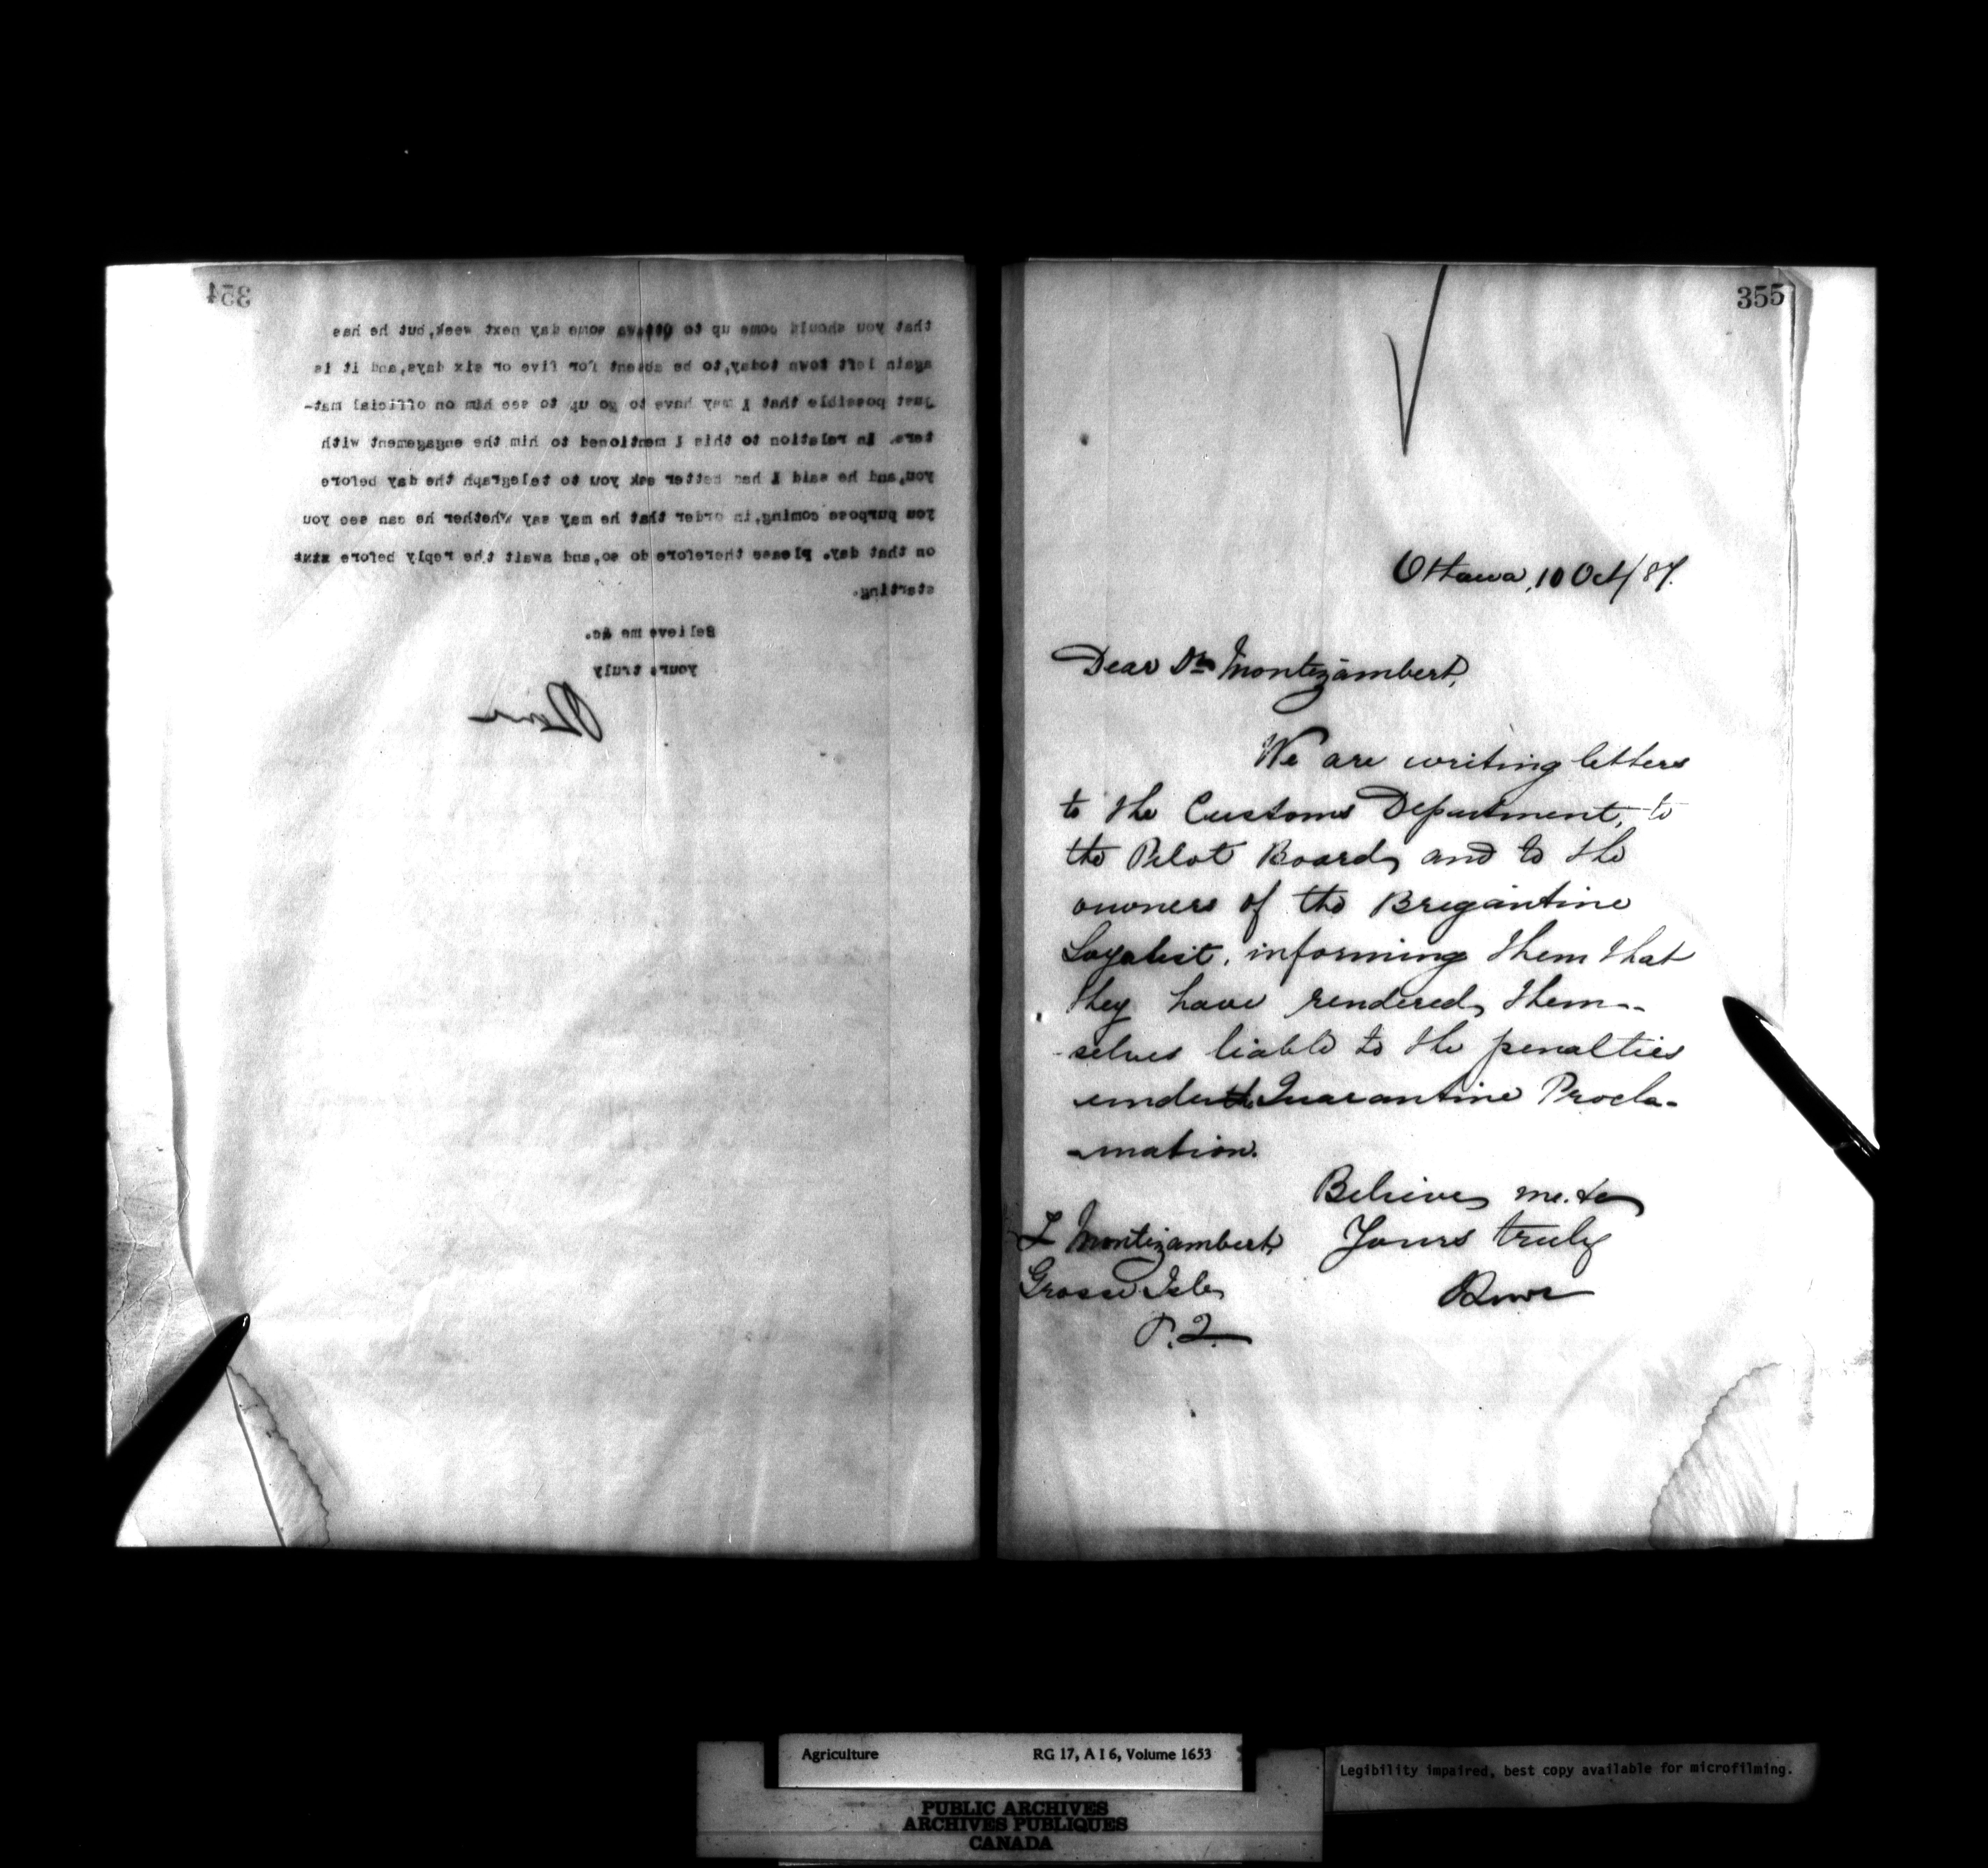 354
that you should come up to Ottawa some day next week,but he has
again left town today,to be absent for five or six days,and it is
just possible that I may have to go up to see him on official mat-
ters. In relation to this I mentioned to him the engagement with
you,and he said I had better ask you to telegraph the day before
you purpose coming,in order that he may say whether he can see you
on that day. please therefore do so,and await the reply before
starting.
Believe me &c.
yours truly
355
Ottawa, 10 Oct/87.
Dear Dr Montizambert,
We are writing letters
to the Customs Department, to
the Pilot Board, and to the
owners of the Bregantine
Loyalist, informing them that
they have rendered them-
-selves liable to the penalties
under the Quarantine Procla-
-mation.
Believe me. &c
Yours truly
Montizambert,
Grosse Isle,
P.Q.
Agriculture RG 17, A I 6, Volume 1653
Legibility impaired, best copy available for microfilming.
PUBLIC ARCHIVES
ARCHIVES PUBLIQUES
CANADA